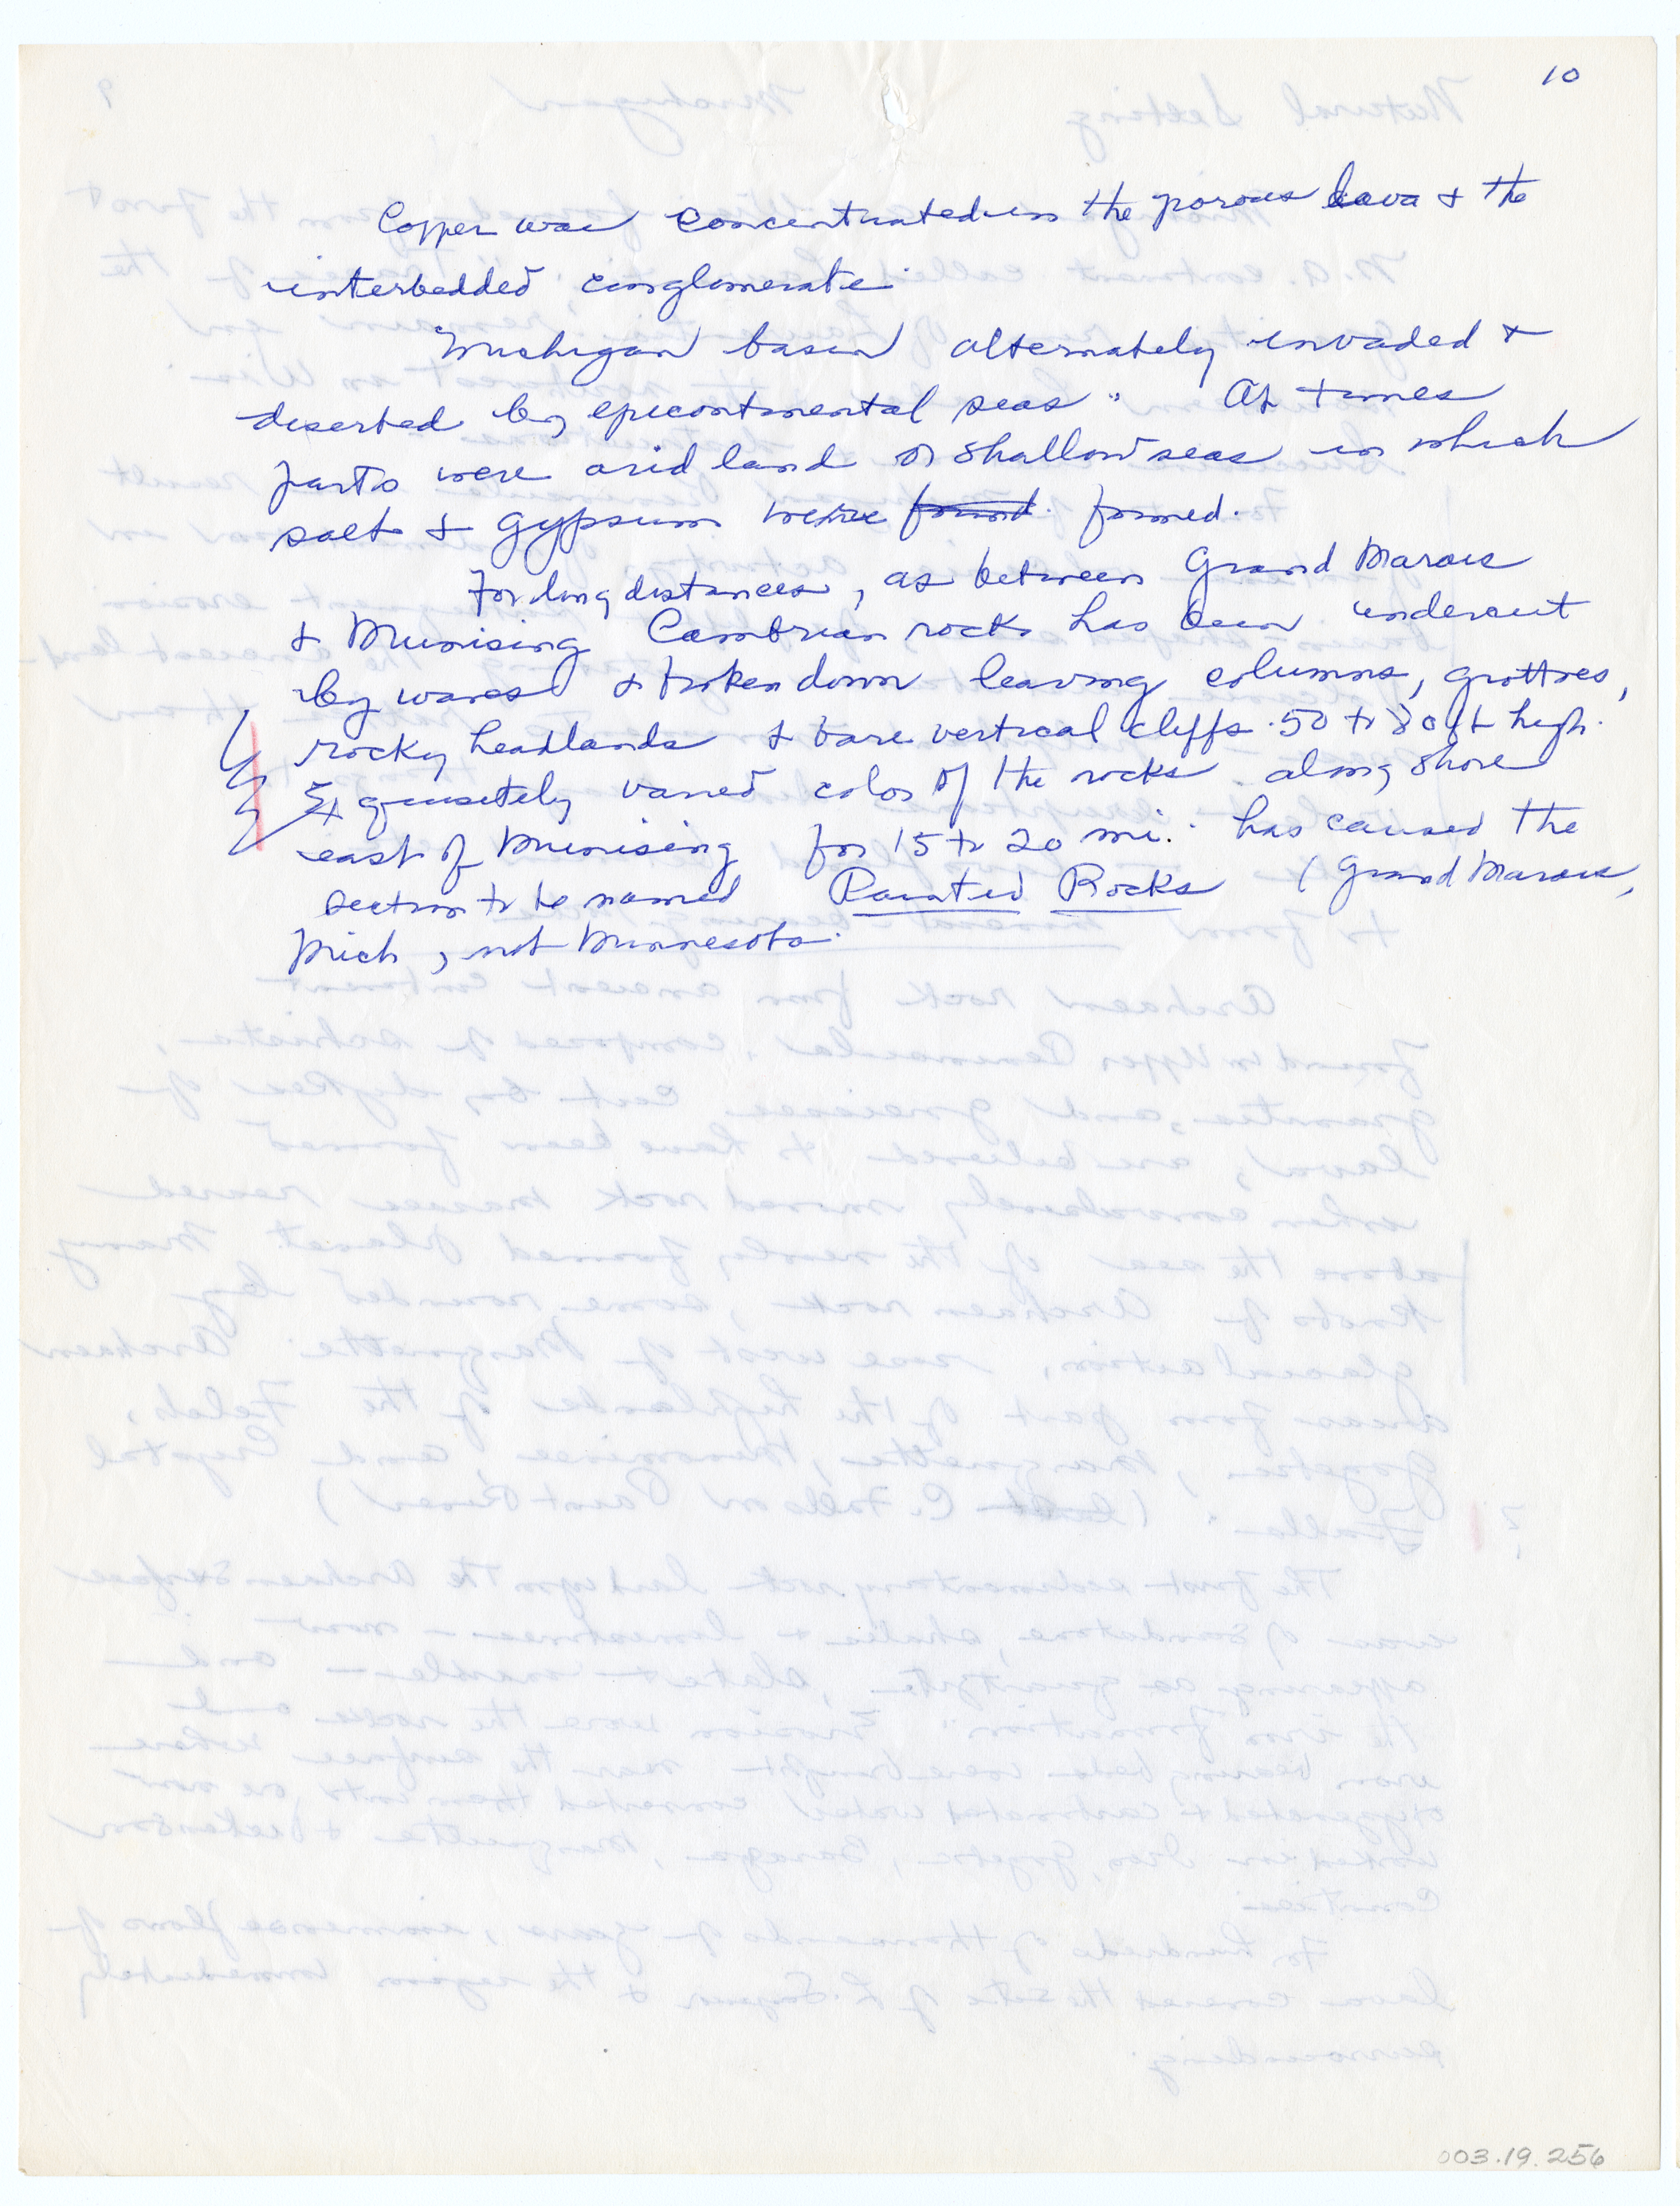 10
Copper was concentrated in the porous lava & the
interbedded conglomerate.
Michigan basin alternately invaded &
deserted by epicontinental seas. At times
parts were arid land or shallow seas in which
salt & gypsum were found. formed.
For long distances, as between Grand Marais
& Munising Cambrian rocks has been undercut
by waves & broken down leaving columns, grottoes,
rocky headlands & bare vertical cliffs 50 to 80 ft high.
Exquisetely varied color of the rocks along shore
east of Munising for 15 to 20 mi. has caused the
section to be named Painted Rocks (Grand Marais,
Mich, not Minnesota.
003.19.256